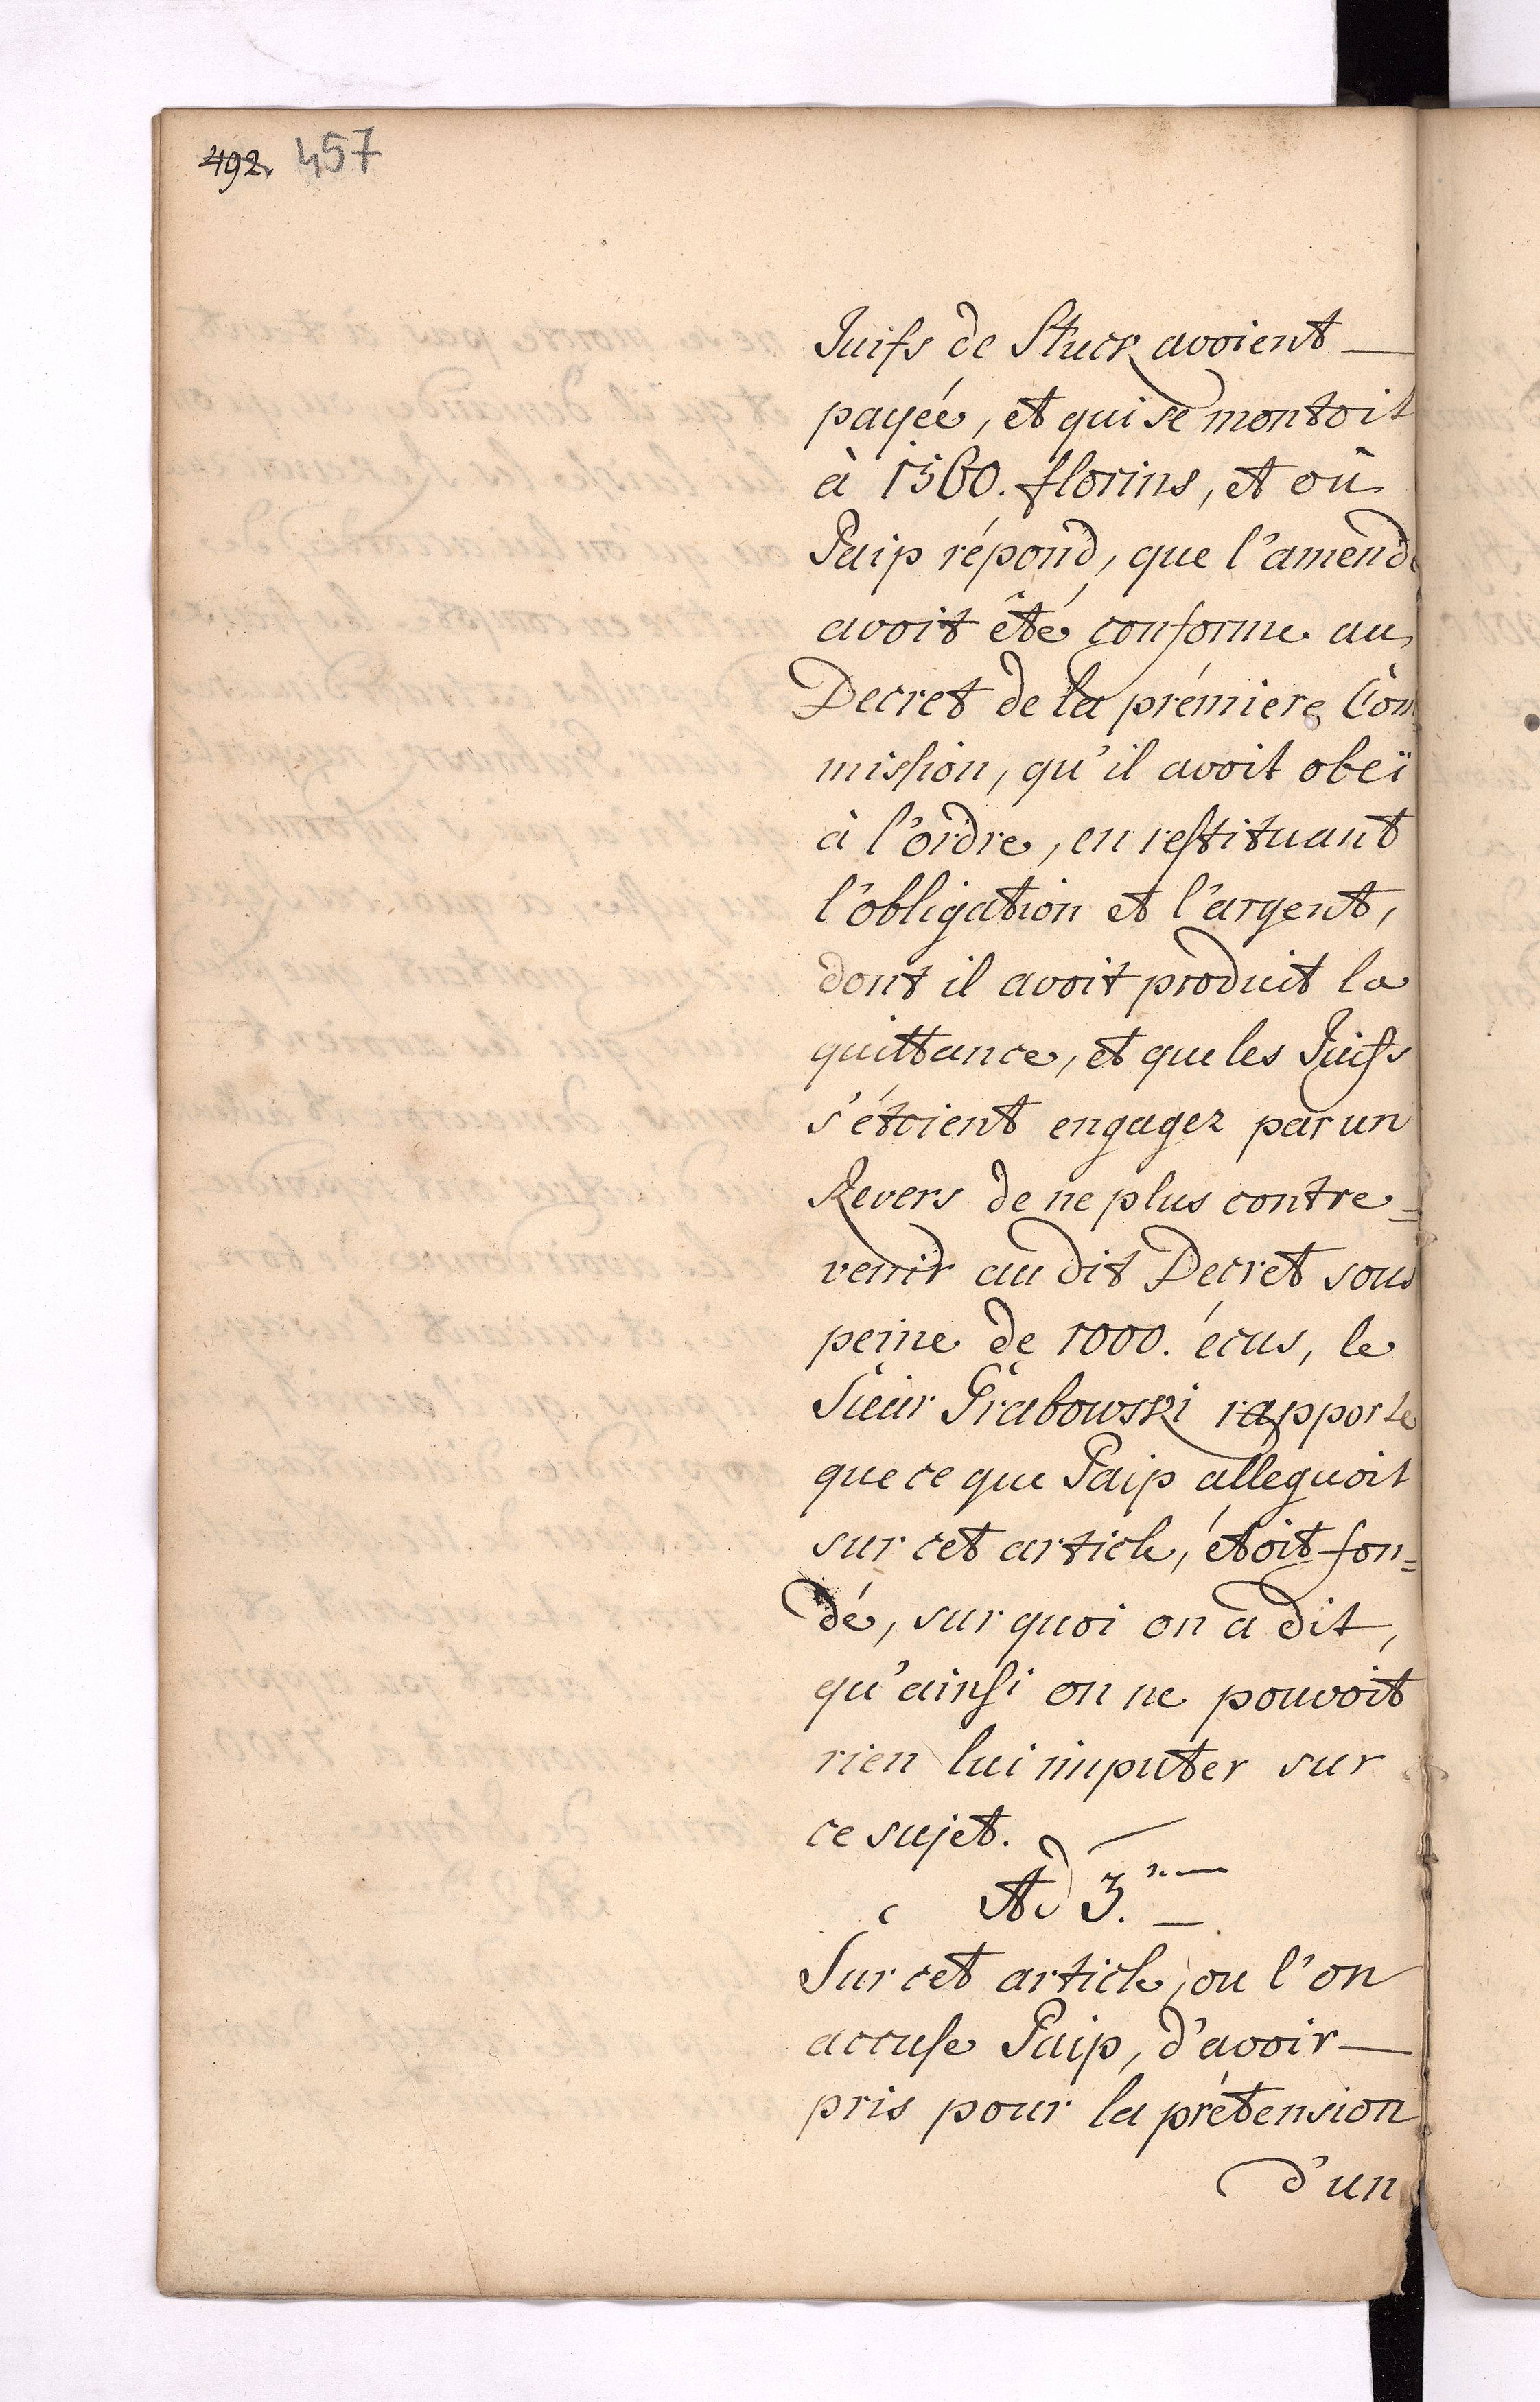 492. 457
Juifs de Stuck avoient —
payée, et qui se montoit
à 1560. florins, et où
Paip répond, que l'amende
avoit êté conforme au
Decret de la prémiere Com
mission, qu'il avoit obeï
à l'ordre, en restituant
l'obligation et l'argent,
dont il avoit produit la
quittance, et que les Juifs
s'étoient engagez par un
Revers de ne plus contre=
venir au dit Decret sous
peine de 1000. écus, le
Sieur Grabowski rapporte
que ce que Paip alleguoit
sur cet article, étoit fon=
dé, sur quoi on a dit,
qu'ainsi on ne pouvoit
rien lui imputer sur
ce sujet.
Ad 3.um
Sur cet article, ou l'on
accuse Paip, d'avoir —
pris pour la prétension
d'un